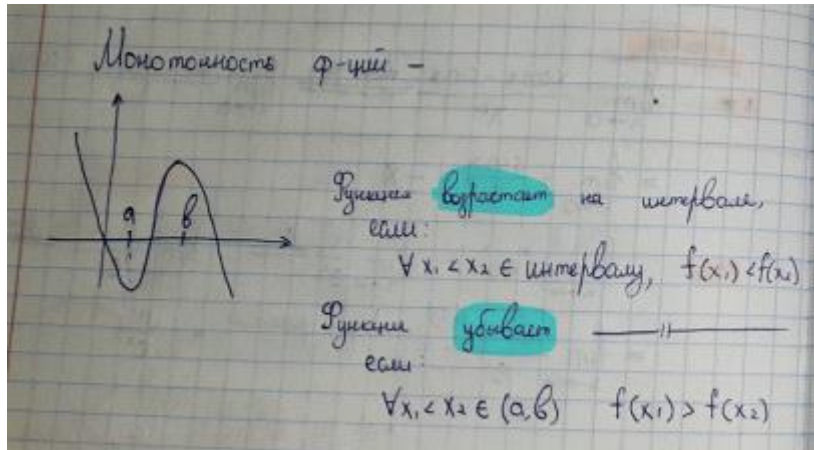 Монотонность ф-ций –
a
b
Функция возрастает на интервале,
если:
∀ x₁ < x₂ ∈ интервалу, f(x₁) < f(x₂)
Функция убывает —— 〃 ——
если:
∀ x₁ < x₂ ∈ (a, b) f(x₁) > f(x₂)